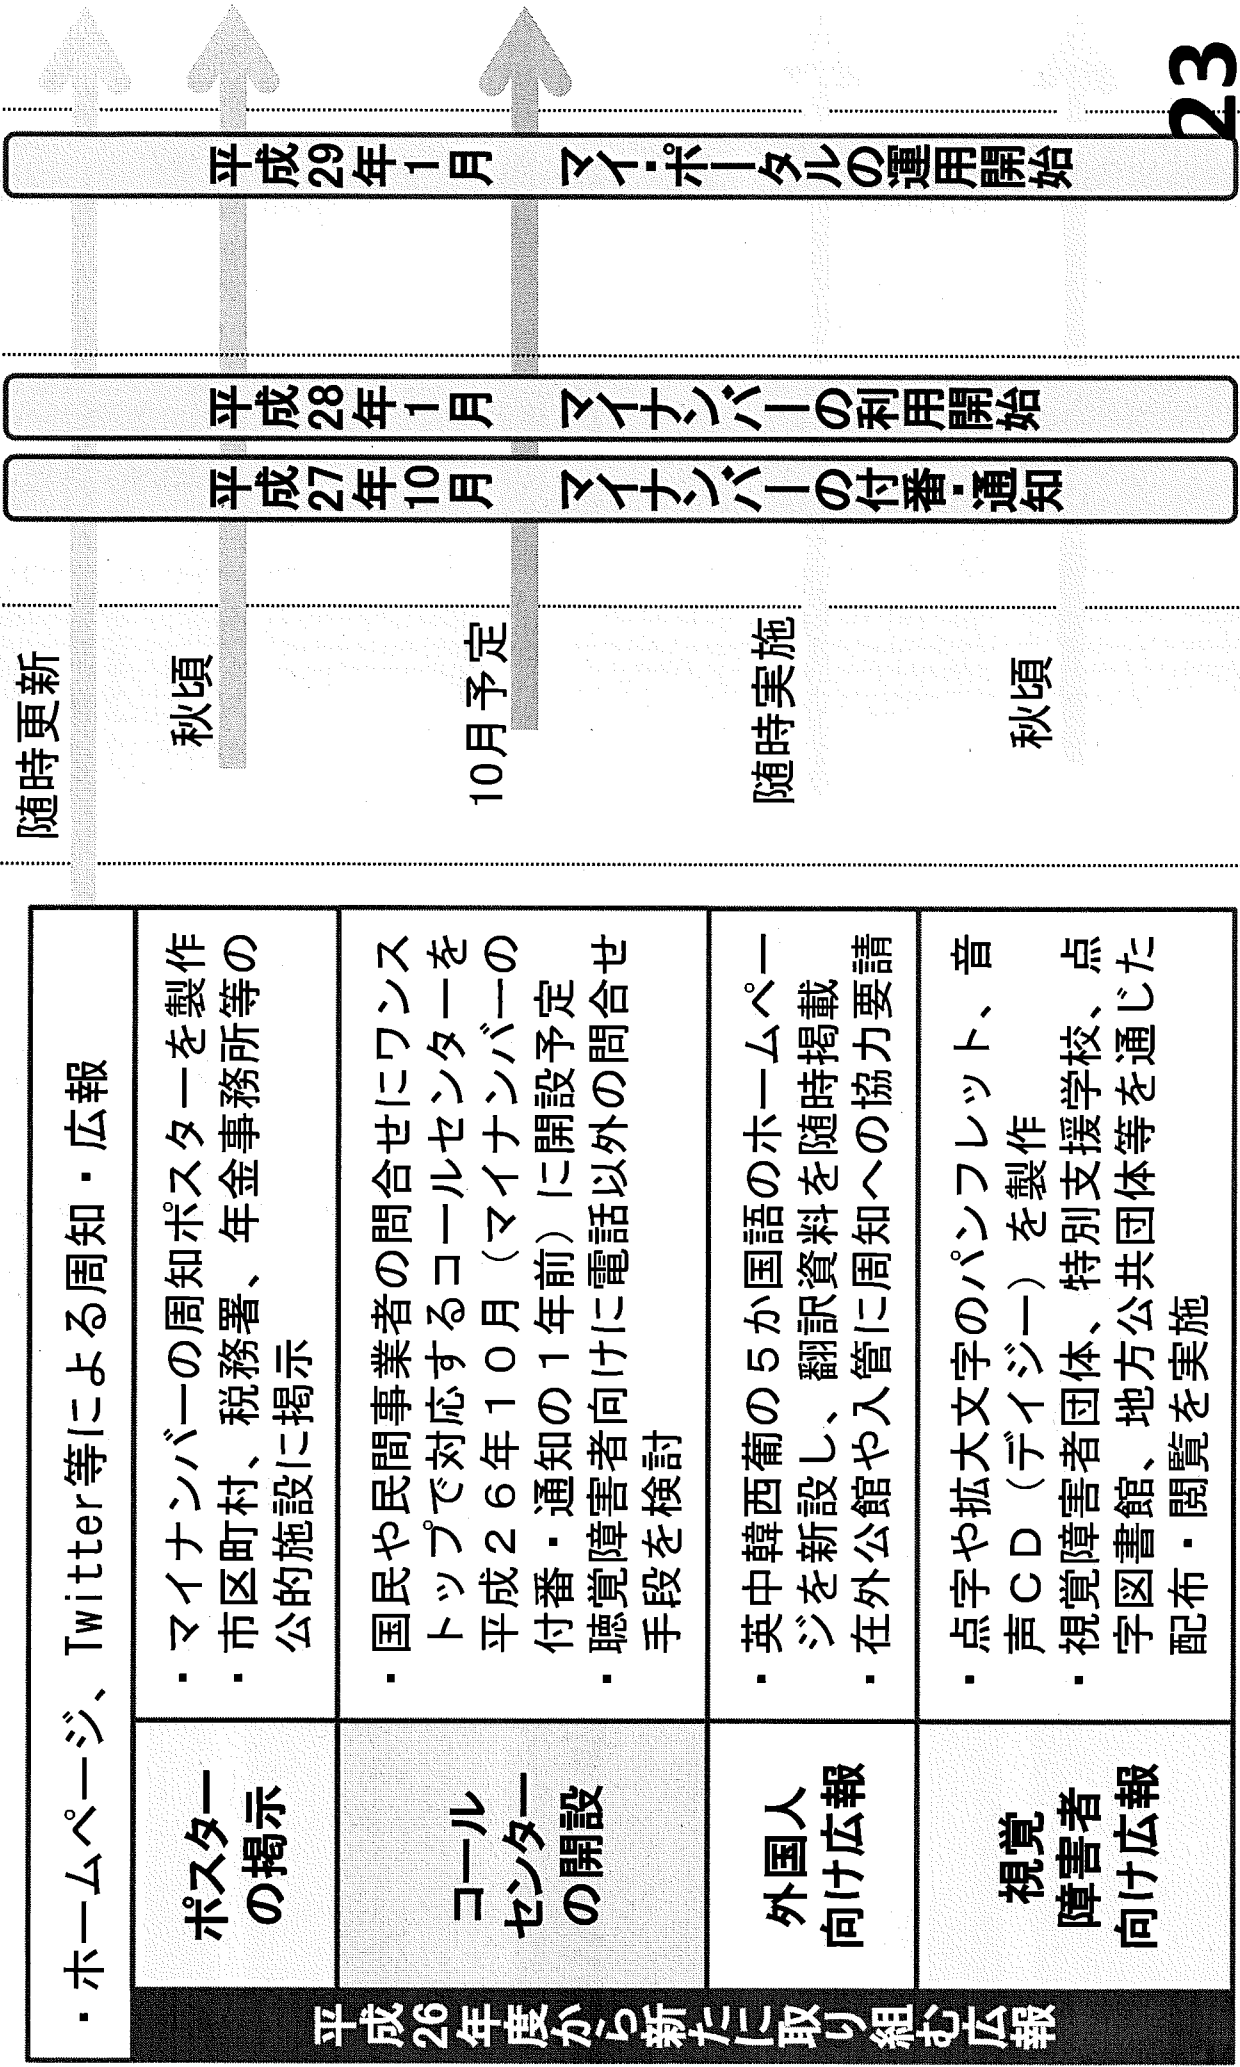 ・ホームページ、Twitter等による周知・広報
平成26年度から新たに取り組む広報
ポスター
の掲示
・マイナンバーの周知ポスターを製作
・市区町村、税務署、年金事務所等の
公的施設に掲示
コール
センター
の開設
・国民や民間事業者の問合せにワンス
トップで対応するコールセンターを
平成２６年１０月（マイナンバーの
付番・通知の１年前）に開設予定
・聴覚障害者向けに電話以外の問合せ
手段を検討
外国人
向け広報
・英中韓西葡の５か国語のホームペー
ジを新設し、翻訳資料を随時掲載
・在外公館や入管に周知への協力要請
視覚
障害者
向け広報
・点字や拡大文字のパンフレット、音
声ＣＤ（デイジー）を製作
・視覚障害者団体、特別支援学校、点
字図書館、地方公共団体等を通じた
配布・閲覧を実施
随時更新
秋頃
10月予定
随時実施
秋頃
平成27年10月　マイナンバーの付番・通知
平成28年1月　マイナンバーの利用開始
平成29年1月　マイ・ポータルの運用開始
23